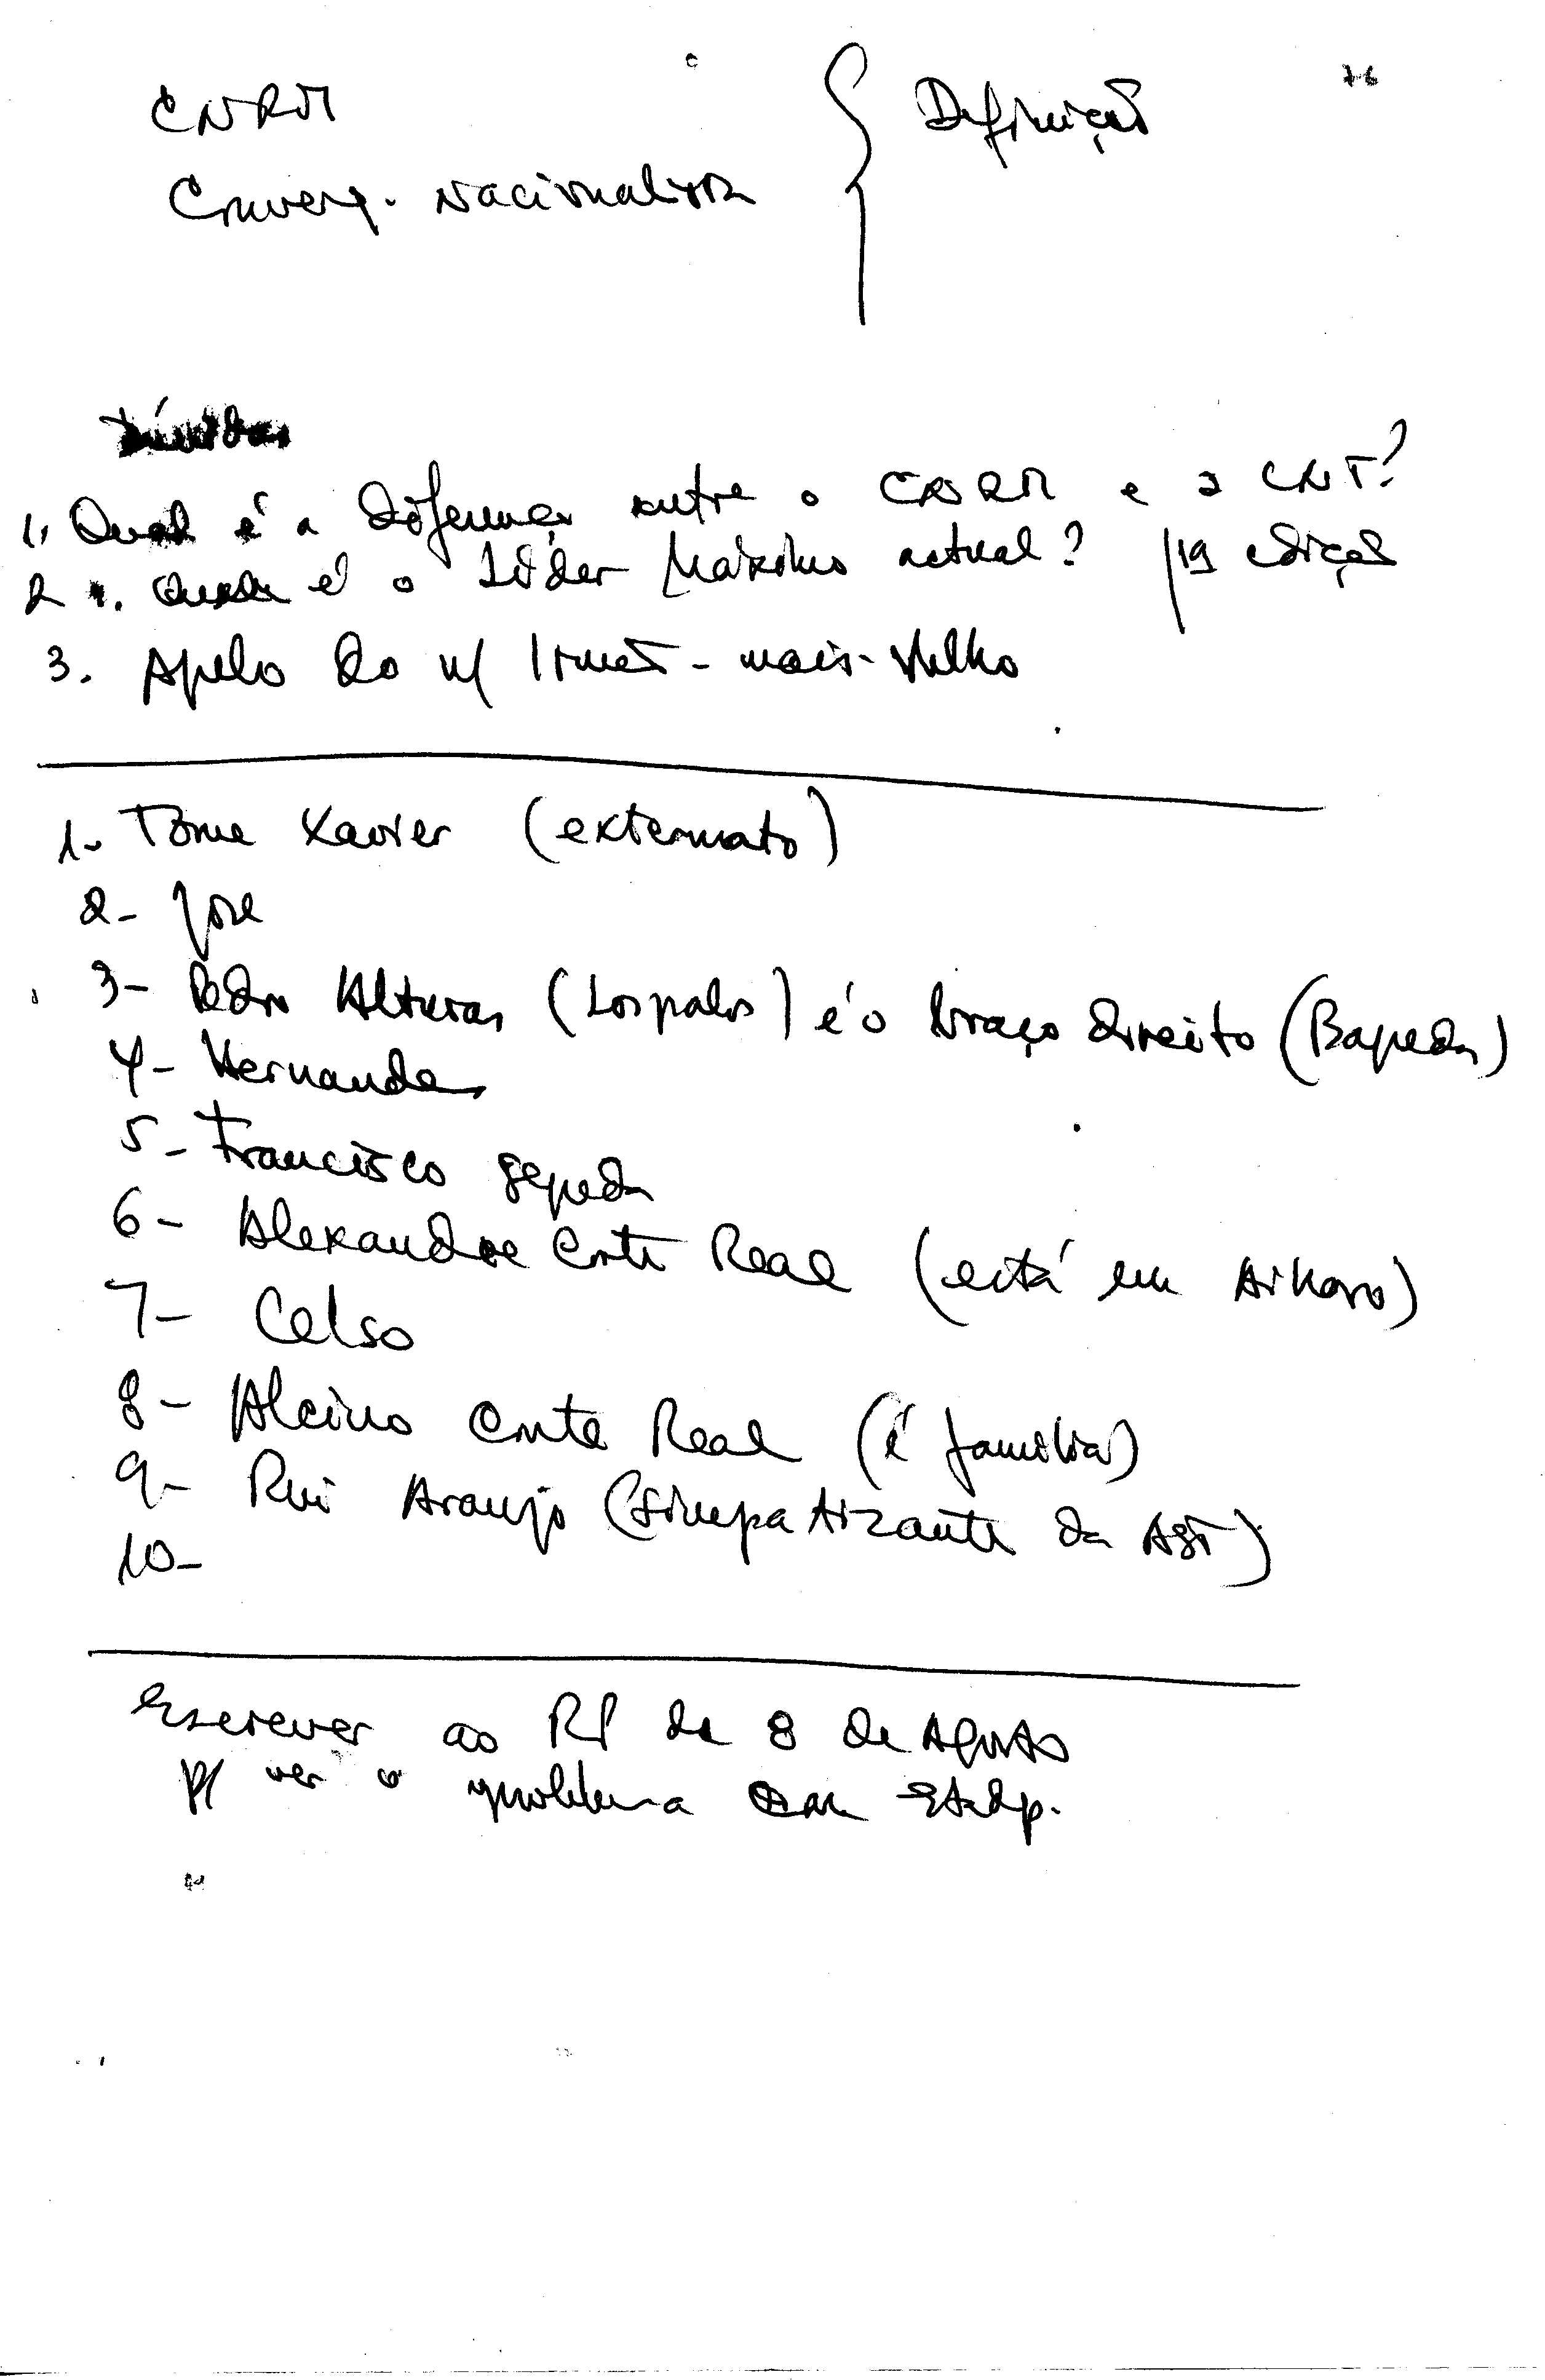 76
CNRM
Converg. Nacionalista
Definição
Dúvidas
1. Qual é a diferença entre o CNRM e a CNT?
2. Quem é o Líder Máximo actual? /1ª edição
3. Apelo do n/ Irmão-mais-velho
1- Tome Xavier (externato)
2- José
3- Pedro Alturas (Lospalos) é o braço direito (Bapeda)
4- Hernandes
5- Francisco Sepeda
6- Alexandre Corte Real (está em Aikoro)
7- Celso
8- Alcino Corte Real (é família)
9- Rui Araujo (simpatizante da AST)
10-
Escrever ao RP de 8 de Agosto
p/ ver o problema em Estudp.